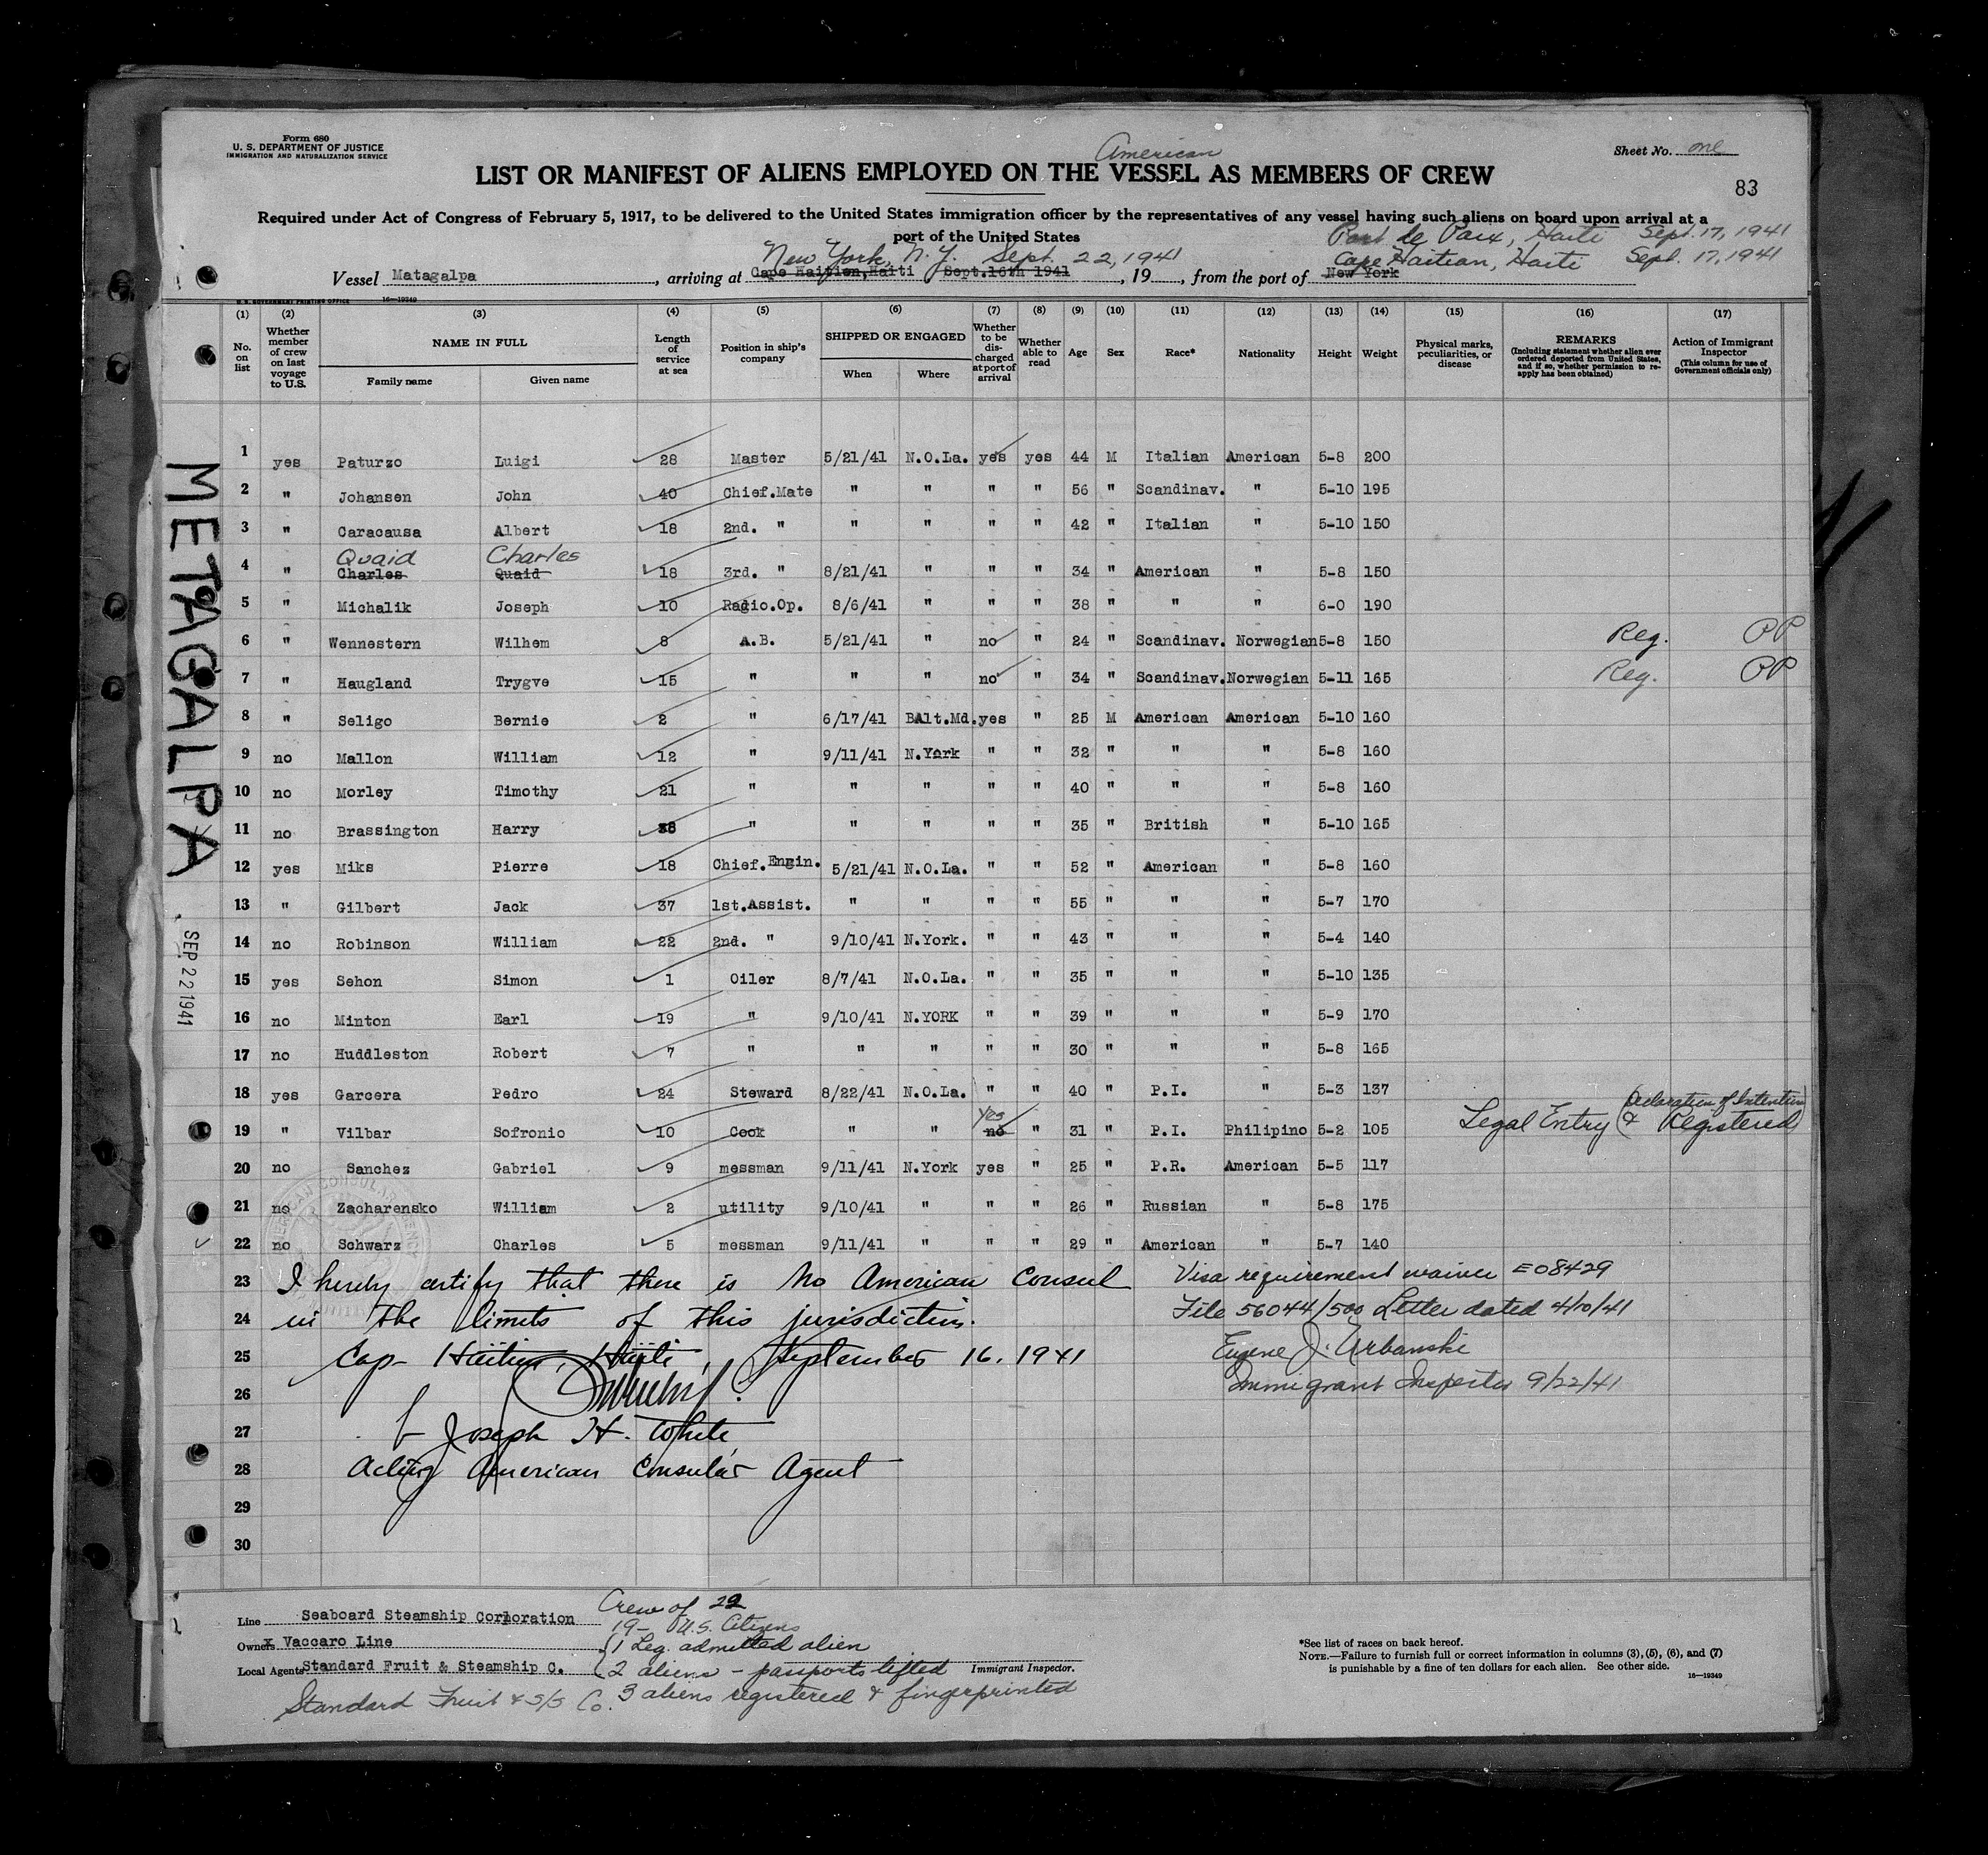 Form 680
U. S. DEPARTMENT OF JUSTICE
IMMIGRATION AND NATURALIZATION SERVICE
Sheet No. one
American
LIST OR MANIFEST OF ALIENS EMPLOYED ON THE VESSEL AS MEMBERS OF CREW
83
Required under Act of Congress of February 5, 1917, to be delivered to the United States immigration officer by the representatives of any vessel having such aliens on board upon arrival at a
port of the United States
Port de Paix, Haiti Sept. 17, 1941
New York, N. Y. Sept. 22, 1941 Cape Haitian, Haiti Sept. 17, 1941
Vessel Matagalpa, arriving at Cape Haitien, Haiti Sept. 16th 1941, 19, from the port of New York
U.S. GOVERNMENT PRINTING OFFICE 16—19349
(1) No. on list
(2) Whether member of crew on last voyage to U.S.
(3) NAME IN FULL
Family name Given name
(4) Length of service at sea
(5) Position in ship's company
(6) SHIPPED OR ENGAGED
When Where
(7) Whether to be discharged at port of arrival
(8) Whether able to read
(9) Age
(10) Sex
(11) Race*
(12) Nationality
(13) Height
(14) Weight
(15) Physical marks, peculiarities, or disease
(16) REMARKS (Including statement whether alien ever ordered deported from United States, and if so, whether permission to reapply has been obtained)
(17) Action of Immigrant Inspector (This column for use of Government officials only)
1 yes Paturzo Luigi 28 Master 5/21/41 N.O.La. yes yes 44 M Italian American 5-8 200
2 " Johansen John 40 Chief.Mate " " " " 56 " Scandinav. " 5-10 195
3 " Caracausa Albert 18 2nd. " " " " " 42 " Italian " 5-10 150
Quaid Charles
4 " Charles Quaid 18 3rd. " 8/21/41 " " " 34 " American " 5-8 150
5 " Michalik Joseph 10 Radio.Op. 8/6/41 " " " 38 " " " 6-0 190
6 " Wennestern Wilhem 8 A.B. 5/21/41 " no " 24 " Scandinav. Norwegian 5-8 150 Reg. PP
7 " Haugland Trygve 15 " " " no " 34 " Scandinav. Norwegian 5-11 165 Reg. PP
8 " Seligo Bernie 2 " 6/17/41 BAlt.Md. yes " 25 M American American 5-10 160
9 no Mallon William 12 " 9/11/41 N.York " " 32 " " " 5-8 160
10 no Morley Timothy 21 " " " " " 40 " " " 5-8 160
11 no Brassington Harry " " " " " 35 " British " 5-10 165
12 yes Miks Pierre 18 Chief.Engin. 5/21/41 N.O.La. " " 52 " American " 5-8 160
13 " Gilbert Jack 37 1st.Assist. " " " " 55 " " " 5-7 170
14 no Robinson William 22 2nd. " 9/10/41 N.York. " " 43 " " " 5-4 140
15 yes Sehon Simon 1 Oiler 8/7/41 N.O.La. " " 35 " " " 5-10 135
16 no Minton Earl 19 " 9/10/41 N.YORK " " 39 " " " 5-9 170
17 no Huddleston Robert 7 " " " " " 30 " " " 5-8 165
18 yes Garcera Pedro 24 Steward 8/22/41 N.O.La. " " 40 " P.I. " 5-3 137
Yes (Declaration of Intention
19 " Vilbar Sofronio 10 Cook " " no " 31 " P.I. Philipino 5-2 105 Legal Entry & Registered)
20 no Sanchez Gabriel 9 messman 9/11/41 N.York yes " 25 " P.R. American 5-5 117
21 no Zacharensko William 2 utility 9/10/41 " " " 26 " Russian " 5-8 175
22 no Schwarz Charles 5 messman 9/11/41 " " " 29 " American " 5-7 140
23 I hereby certify that there is no American Consul Visa requirement waiver E08429
24 in the limits of this jurisdiction. File 56044/500 Letter dated 4/10/41
25 Cap-Haitien, Haiti, September 16. 1941 Eugene J. Urbanski
26 Immigrant Inspector 9/22/41
27 Joseph H. White
28 Acting American Consular Agent
29
30
METAGALPA
SEP 22 1941
AMERICAN CONSULAR AGENCY
Line Seaboard Steamship Corporation Crew of 22
19- U.S. Citizens
Owners Vaccaro Line 1 Leg. admitted alien
Local Agents Standard Fruit & Steamship C. 2 aliens - passports lifted Immigrant Inspector.
Standard Fruit & S/S Co. 3 aliens registered & fingerprinted
*See list of races on back hereof.
NOTE.—Failure to furnish full or correct information in columns (3), (5), (6), and (7)
is punishable by a fine of ten dollars for each alien. See other side.
16—19349